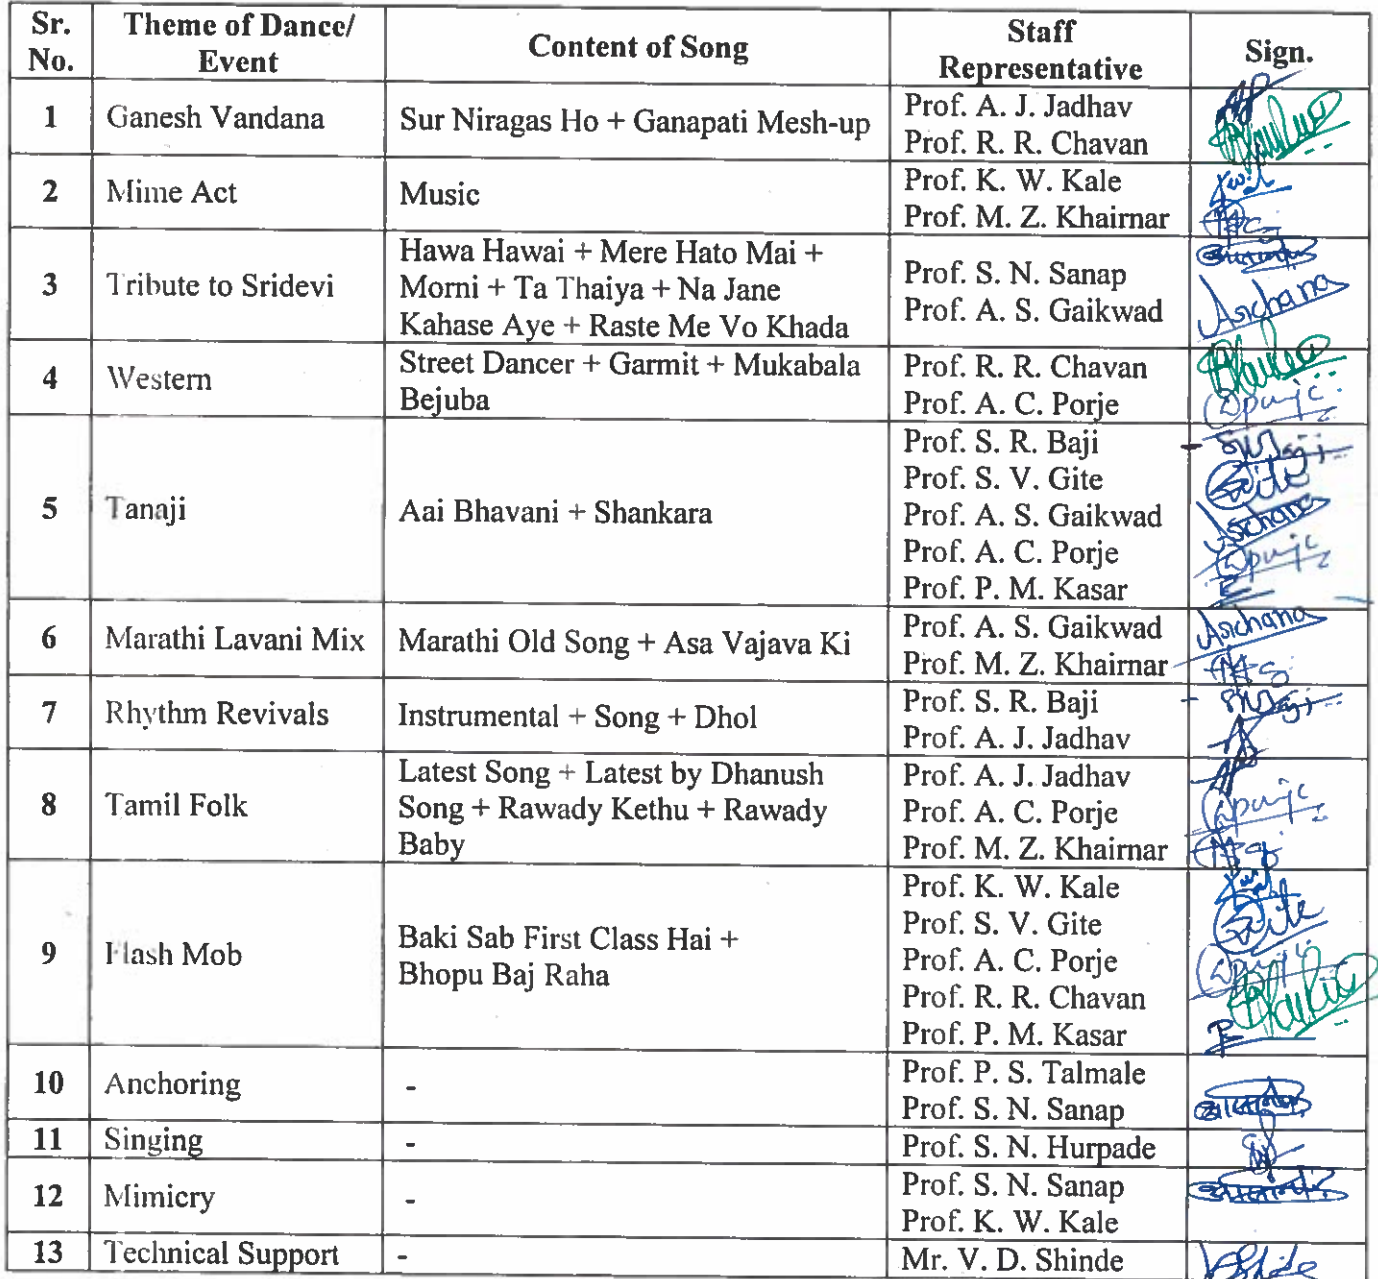 Sr. No. Theme of Dance/ Event Content of Song Staff Representative Sign.
1 Ganesh Vandana Sur Niragas Ho + Ganapati Mesh-up Prof. A. J. Jadhav
Prof. R. R. Chavan
2 Mime Act Music Prof. K. W. Kale
Prof. M. Z. Khairnar
3 Tribute to Sridevi Hawa Hawai + Mere Hato Mai +
Morni + Ta Thaiya + Na Jane
Kahase Aye + Raste Me Vo Khada
Prof. S. N. Sanap
Prof. A. S. Gaikwad Archana
4 Western Street Dancer + Garmit + Mukabala
Bejuba
Prof. R. R. Chavan
Prof. A. C. Porje
5 Tanaji Aai Bhavani + Shankara Prof. S. R. Baji
Prof. S. V. Gite Gite
Prof. A. S. Gaikwad Archana
Prof. A. C. Porje
Prof. P. M. Kasar
6 Marathi Lavani Mix Marathi Old Song + Asa Vajava Ki Prof. A. S. Gaikwad Archana
Prof. M. Z. Khairnar
7 Rhythm Revivals Instrumental + Song + Dhol Prof. S. R. Baji
Prof. A. J. Jadhav
8 Tamil Folk Latest Song + Latest by Dhanush
Song + Rawady Kethu + Rawady
Baby
Prof. A. J. Jadhav
Prof. A. C. Porje
Prof. M. Z. Khairnar
9 Flash Mob Baki Sab First Class Hai +
Bhopu Baj Raha
Prof. K. W. Kale
Prof. S. V. Gite Gite
Prof. A. C. Porje
Prof. R. R. Chavan
Prof. P. M. Kasar
10 Anchoring - Prof. P. S. Talmale
Prof. S. N. Sanap
11 Singing - Prof. S. N. Hurpade
12 Mimicry - Prof. S. N. Sanap
Prof. K. W. Kale
13 Technical Support - Mr. V. D. Shinde